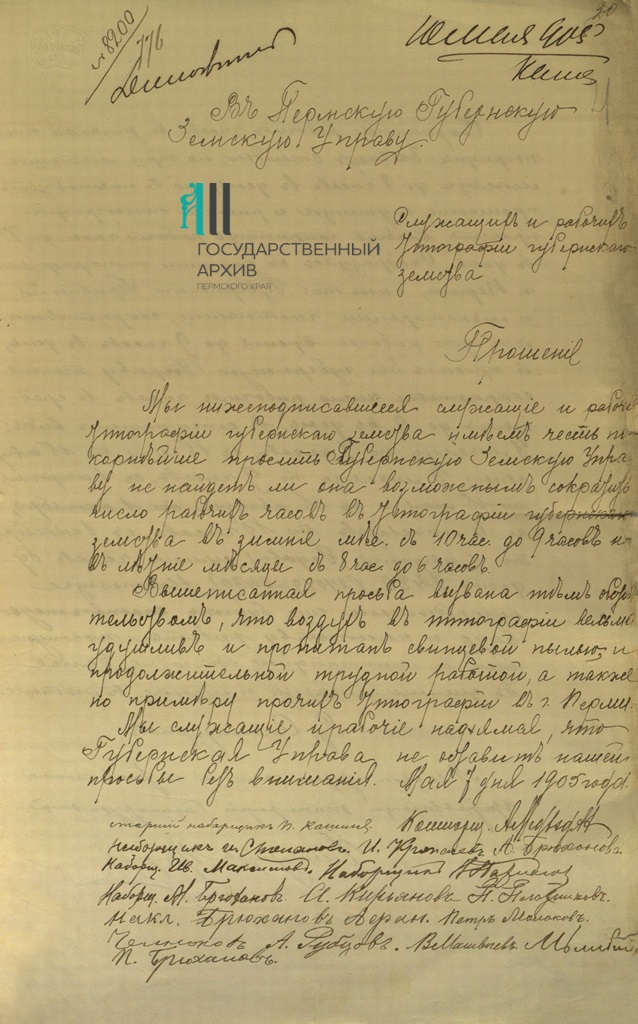 20
№ 8200
776
10 мая 905
Въ Пермскую Губернскую
Земскую Управу.
Служащихъ и рабочихъ
типографіи губернскаго
земства
ГОСУДАРСТВЕННЫЙ
АРХИВ
ПЕРМСКОГО КРАЯ
Прошеніе
Мы нижеподписавшіеся служащіе и рабочіе
типографіи губернскаго земства имѣемъ честь по-
корнѣйше просить Губернскую Земскую Упра-
ву не найдетъ ли она возможнымъ сократить
число рабочихъ часовъ въ типографіи
земства въ зимніе мѣс. съ 10 час. до 9 часовъ и
въ лѣтніе мѣсяцы съ 8 час. до 6 часовъ.
Вышеписанная просьба вызвана тѣмъ обстоя-
тельствомъ, что воздухъ въ типографіи весьма
удушливъ и пропитанъ свинцовой пылью и
продолжительной трудной работой, а также
по примѣру прочихъ типографіи въ г. Перми.
Мы служащіе и рабочіе надѣемся, что
Губернская Управа не оставитъ нашей
просьбы безъ вниманія. Мая 7 дня 1905 года.
старшій наборщикъ П. Кашинъ.
Наборщикъ и. Степановъ. И. А. Брюхановъ
Наборщ. Ив. Максимовъ. Наборщикъ
Наборщ. А. Брюхановъ. А. Кирьяновъ. Н. Плотниковъ.
накл. Брюхановъ Петръ Малаховъ.
А. Рубцовъ. В Матвѣевъ.
П. Брюхановъ.